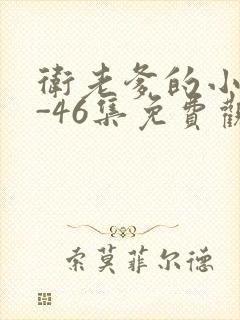 衛老爹的小
-46集免費觀
索莫菲尔德